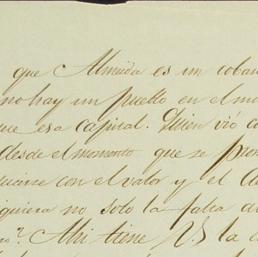 que Almeida es un cobar
no hay un pueblo en el m
que esa capital. Quien vió c
desde el momento que se pron
ucirse con el valor y el de
iquiera no solo la falta de
? Ahi tiene V. la